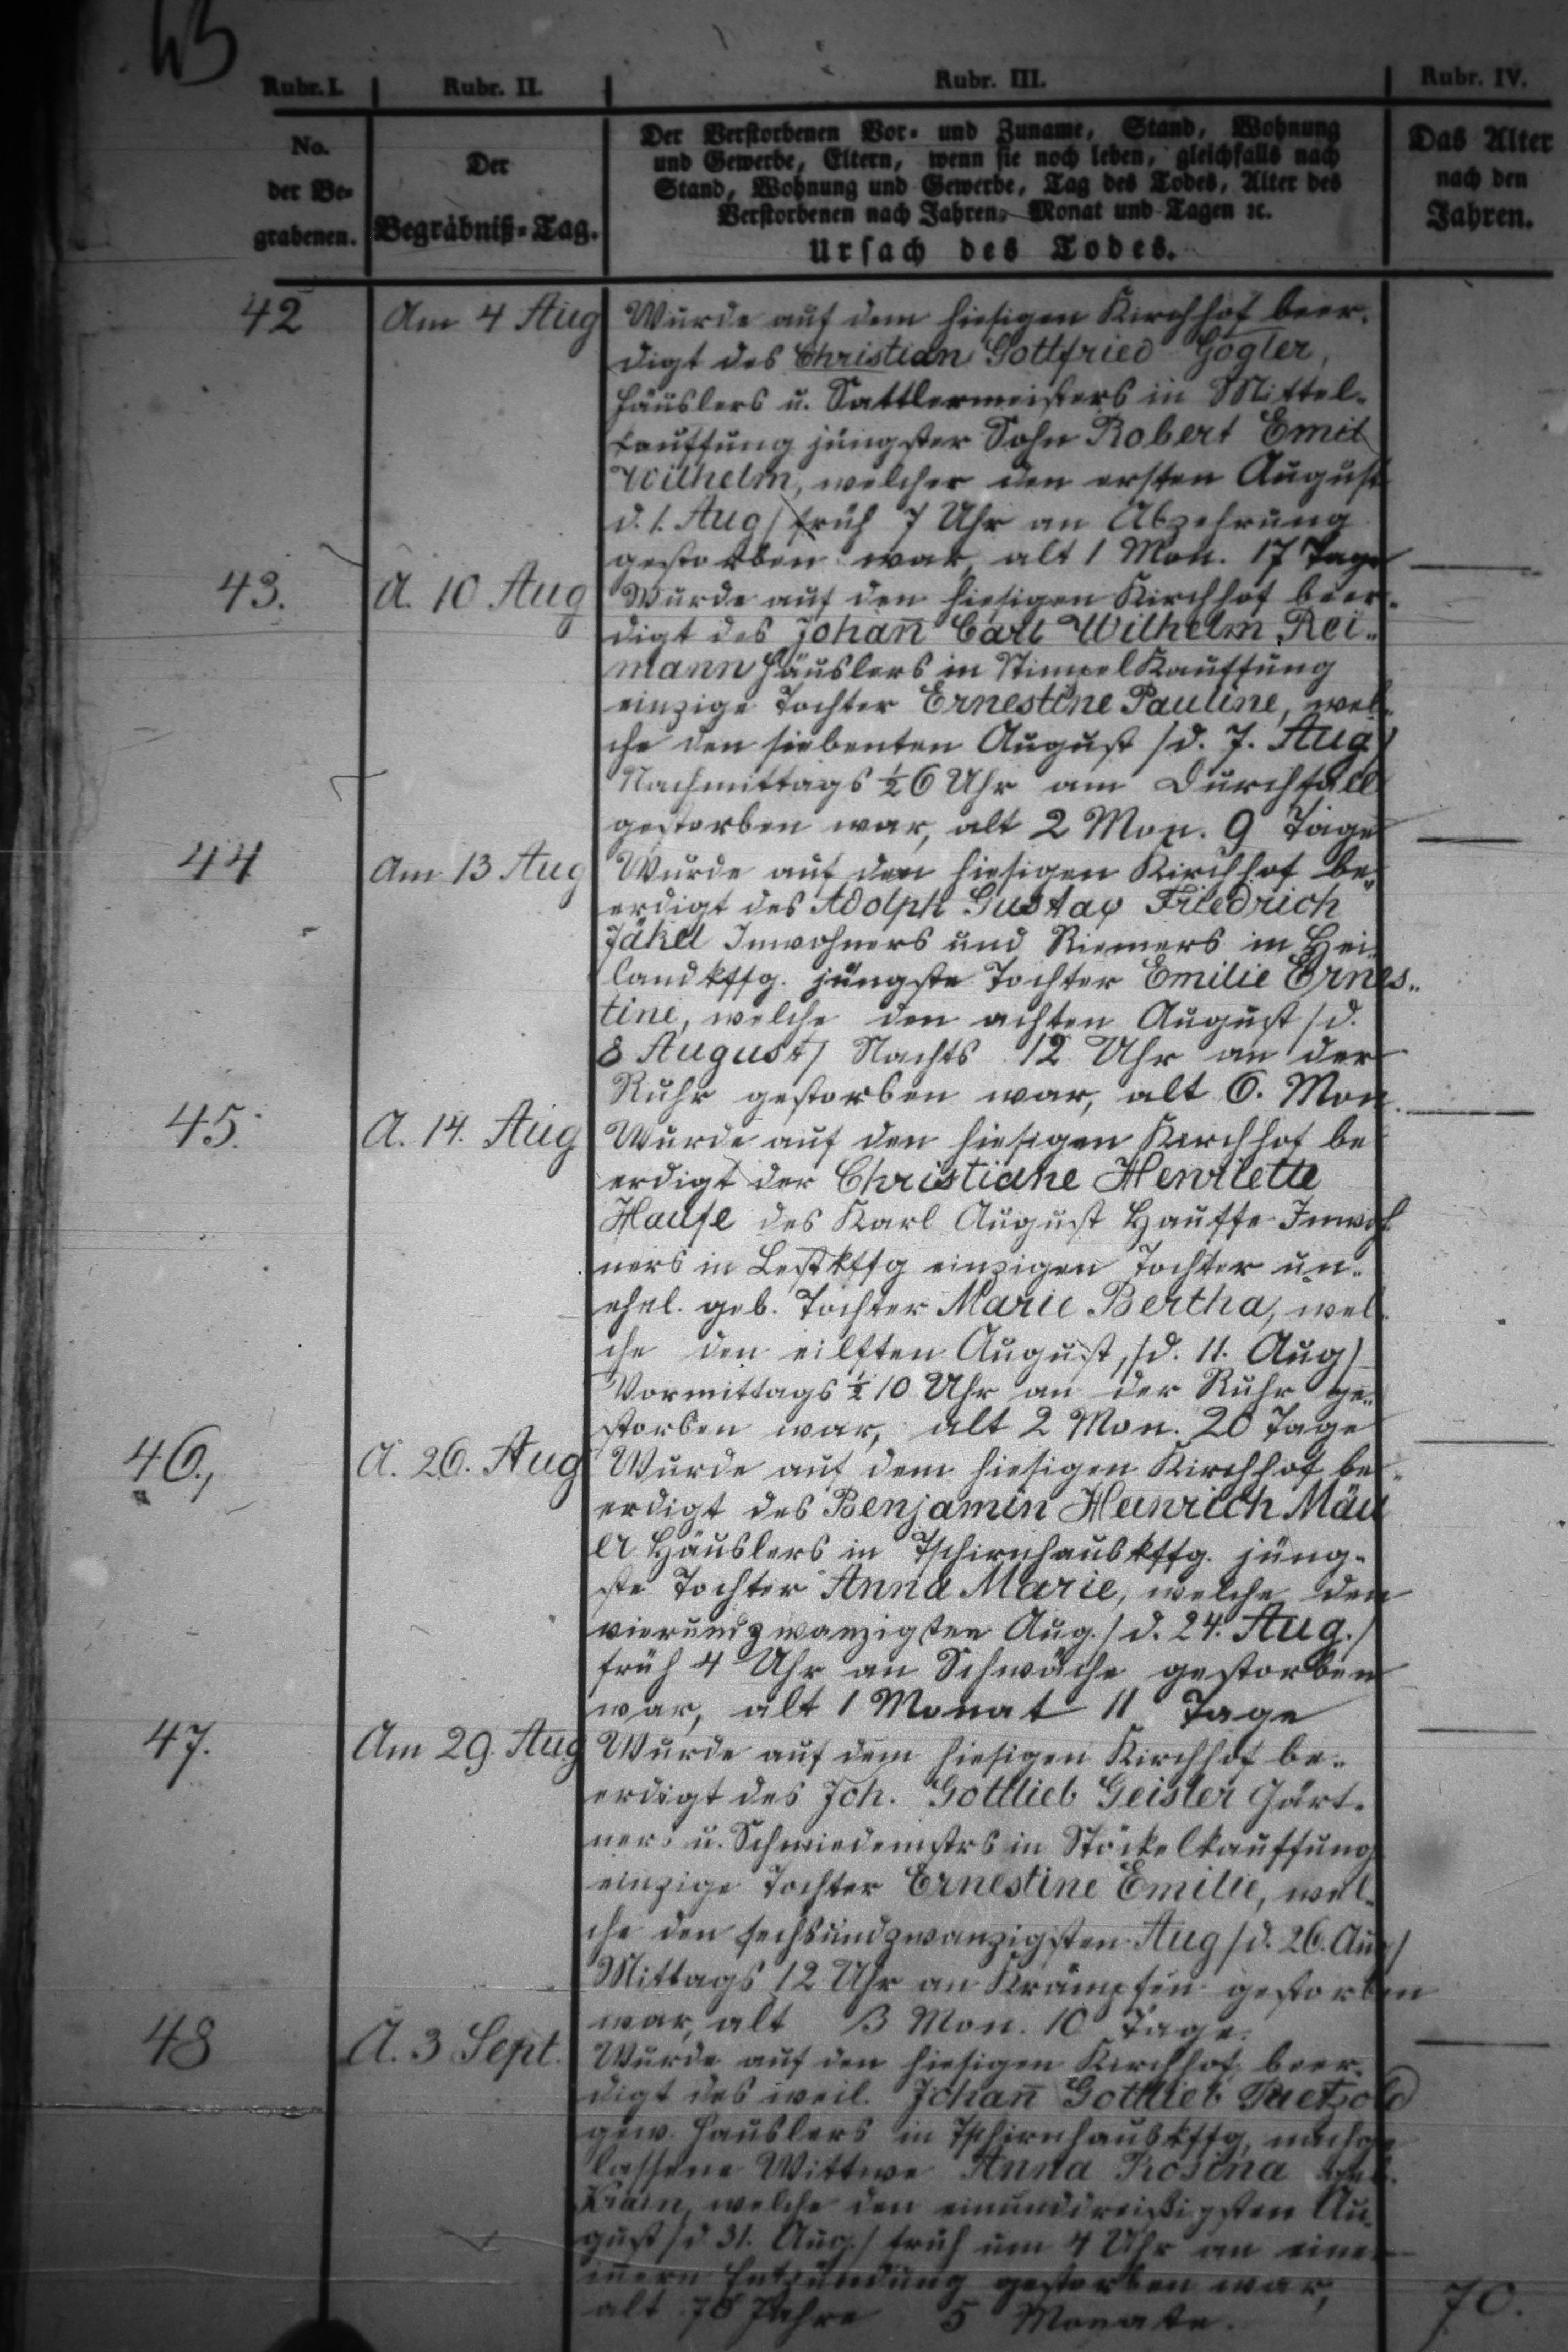 43
Rubr. I. Rubr. II. Rubr. III. Rubr. IV.
No. der Be- grabenen.
Der Begräbniß-Tag.
Der Verstorbenen Vor- und Zuname, Stand, Wohnung
und Gewerbe, Eltern, wenn sie noch leben, gleichfalls nach
Stand, Wohnung und Gewerbe, Tag des Todes, Alter des
Verstorbenen nach Jahren, Monat und Tagen ꝛc.
Ursach des Todes.
Das Alter
nach den
Jahren.
42 Am 4 Aug Wurde auf dem hiesigen Kirchhof beer-
digt des Christian Gottfried Gögler,
Häuslers u. Sattlermeisters in Mittel-
kauffung jüngster Sohn Robert Emil
Wilhelm, welcher den ersten August
d. 1. Aug/ früh 7 Uhr an Abzehrung
gestorben war alt 1 Mon. 17 Tage
43. A. 10 Aug Wurde auf den hiesigen Kirchhof beer-
digt des Johan̄ Carl Wilhelm Rei-
mann Häuslers in Stimpel Kauffung
einzige Tochter Ernestine Pauline, wel-
che den siebenten August /d. 7. Aug/
Nachmittags ½ 6 Uhr am Durchfall
gestorben war, alt 2 Mon. 9 Tage
44 Am 13 Aug Wurde auf den hiesigen Kirchhof be-
erdigt des Adolph Gustav Friedrich
Jäkel Inwohners und Riemers in Hei-
landkffg. jüngste Tochter Emilie Ernes-
tine, welche den achten August /d.
8 August/ Nachts 12 Uhr an der
Ruhr gestorben war, alt 6. Mon.
45. A. 14. Aug Wurde auf den hiesigen Kirchhof be
erdigt der Christiane Henriette
Haufe des Karl August Hauffe Inwoh
ners in Lestkffg einzigen Tochter un-
ehel. geb. Tochter Marie Bertha, wel-
che den eilften August, /d. 11. Aug/
Vormittags ½ 10 Uhr an der Ruhr ge-
storben war, alt 2 Mon. 20 Tage
46., A. 26. Aug Wurde auf dem hiesigen Kirchhof be-
erdigt des Benjamin Heinrich Mäu
er Häuslers in Tschirnhauskffg. jüng-
ste Tochter Anna Marie, welche den
vierundzwanzigsten Aug. /d. 24. Aug./
früh 4 Uhr an Schwäche gestorben
war, alt 1 Monat 11 Tage
47. Am 29. Aug Wurde auf dem hiesigen Kirchhof be-
erdigt des Joh. Gottlieb Geisler Gärt-
ners u. Schmiedemstrs in Stöckelkauffung
einzige Tochter Ernestine Emilie, wel-
che den sechsundzwanzigsten Aug /d. 26. Aug/
Mittags 12 Uhr an Krämpfen gestorben
war, alt 3 Mon. 10 Tage.
48 A. 3 Sept. Wurde auf den hiesigen Kirchhof beer-
digt des weil. Johan̄ Gottlieb
gew. Häuslers in Tschirnhauskffg, nachge
lassene Wittwe Anna Rosina geb.
welche den einunddreißigsten Au-
gust /d 31. Aug./ früh um 4 Uhr an einer
innern Entzündung gestorben war,
alt 70 Jahre 5 Monate. 70.